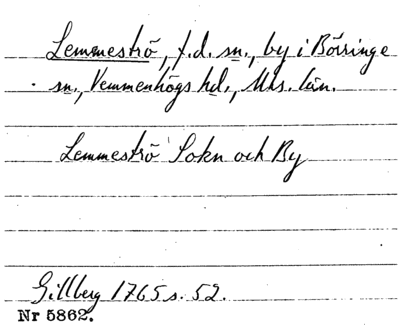 Lemmeströ, f.d. sn., by i Börringe
sn., Vemmenhögs hd., Mhs. län.
Lemmeströ Sokn och By
Gillberg 1765 s. 52.
Nr 5862.